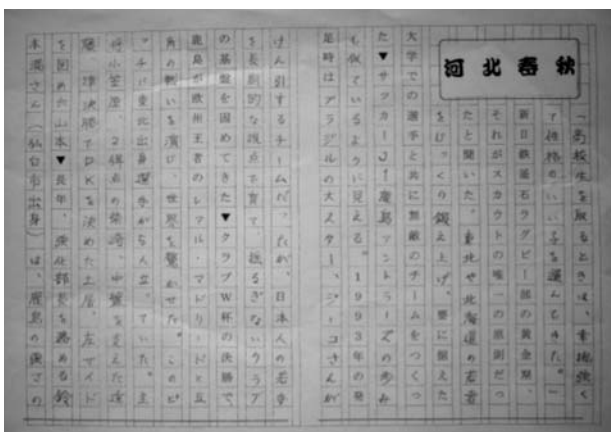 河北春秋
「高校生を取るときは、意地強く
て性格のいい子を選んできた。」
新日鉄釜石ラグビー部の黄金期、
それがスカウトの唯一の原則だっ
たと聞いた。東北や北海道の若者
をじっくり鍛え上げ、要に据えた
大学での選手と共に無敵のチームをつくっ
た▼サッカーJ1鹿島アントラーズの歩み
も似ているように見える。1993年の発
足時はブラジルの大スター、ジーコさんが
けん引するチームだ。だが、日本人の若手
を長期的な視点で育て、揺るぎないクラブ
の基盤を固めてきた▼クラブW杯の決勝で
鹿島が欧州王者のレアル・マドリードと互
角の戦いを演じ、世界を驚かせた。このピ
ッチに東北出身選手が5人立っていた。主
将小笠原、2得点の柴崎、中盤を支えた遠
藤、準決勝でPKを決めた土居、左サイド
を固めた山本▼長年、強化部長を務める鈴
木満さん（仙台市出身）は、鹿島の強さの